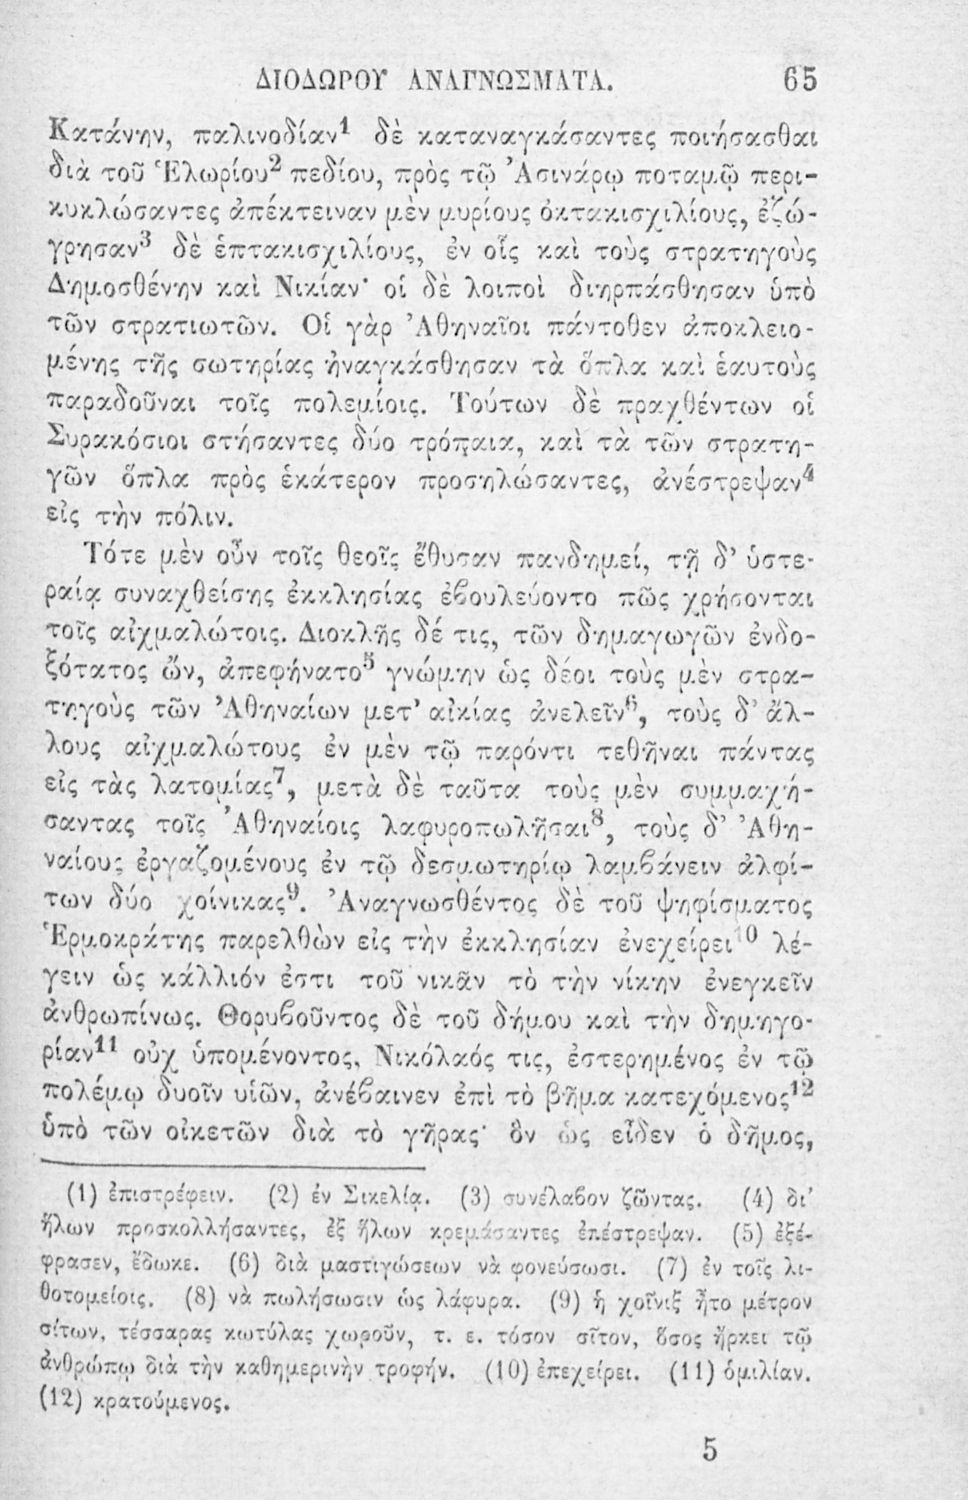 ΔΙΟΔΩΡΟΥ ΑΝΑΓΝΩΣΜΑΤΑ. 65
Κατάνην, παλινοδίαν¹ δὲ καταναγκάσαντες ποιήσασθαι
διὰ τοῦ Ἑλωρίου² πεδίου, πρὸς τῷ Ἀσινάρῳ ποταμῷ περι-
κυκλώσαντες ἀπέκτειναν μὲν μυρίους ὀκτακισχιλίους, ἐζώ-
γρησαν³ δὲ ἑπτακισχιλίους, ἐν οἷς καὶ τοὺς στρατηγοὺς
Δημοσθένην καὶ Νικίαν· οἱ δὲ λοιποὶ διηρπάσθησαν ὑπὸ
τῶν στρατιωτῶν. Οἱ γὰρ Ἀθηναῖοι πάντοθεν ἀποκλειο-
μένης τῆς σωτηρίας ἠναγκάσθησαν τὰ ὅπλα καὶ ἑαυτοὺς
παραδοῦναι τοῖς πολεμίοις. Τούτων δὲ πραχθέντων οἱ
Συρακόσιοι στήσαντες δύο τρόπαια, καὶ τὰ τῶν στρατη-
γῶν ὅπλα πρὸς ἑκάτερον προσηλώσαντες, ἀνέστρεψαν⁴
εἰς τὴν πόλιν.
Τότε μὲν οὖν τοῖς θεοῖς ἔθυσαν πανδημεί, τῇ δ' ὑστε-
ραίᾳ συναχθείσης ἐκκλησίας ἐϐουλεύοντο πῶς χρήσονται
τοῖς αἰχμαλώτοις. Διοκλῆς δέ τις, τῶν δημαγωγῶν ἐνδο-
ξότατος ὤν, ἀπεφήνατο⁵ γνώμην ὡς δέοι τοὺς μὲν στρα-
τηγοὺς τῶν Ἀθηναίων μετ' αἰκίας ἀνελεῖν⁶, τοὺς δ' ἄλ-
λους αἰχμαλώτους ἐν μὲν τῷ παρόντι τεθῆναι πάντας
εἰς τὰς λατομίας⁷, μετὰ δὲ ταῦτα τοὺς μὲν συμμαχή-
σαντας τοῖς Ἀθηναίοις λαφυροπωλῆσαι⁸, τοὺς δ' Ἀθη-
ναίους ἐργαζομένους ἐν τῷ δεσμωτηρίῳ λαμϐάνειν ἀλφί-
των δύο χοίνικας⁹. Ἀναγνωσθέντος δὲ τοῦ ψηφίσματος
Ἑρμοκράτης παρελθὼν εἰς τὴν ἐκκλησίαν ἐνεχείρει¹⁰ λέ-
γειν ὡς κάλλιόν ἐστι τοῦ νικᾶν τὸ τὴν νίκην ἐνεγκεῖν
ἀνθρωπίνως. Θορυϐοῦντος δὲ τοῦ δήμου καὶ τὴν δημηγο-
ρίαν¹¹ οὐχ ὑπομένοντος, Νικόλαός τις, ἐστερημένος ἐν τῷ
πολέμῳ δυοῖν υἱῶν, ἀνέϐαινεν ἐπὶ τὸ βῆμα κατεχόμενος¹²
ὑπὸ τῶν οἰκετῶν διὰ τὸ γῆρας· ὃν ὡς εἶδεν ὁ δῆμος,
(1) ἐπιστρέφειν. (2) ἐν Σικελίᾳ. (3) συνέλαϐον ζῶντας. (4) δι'
ἥλων προσκολλήσαντες, ἐξ ἥλων κρεμάσαντες ἐπέστρεψαν. (5) ἐξέ-
φρασεν, ἔδωκε. (6) διὰ μαστιγώσεων νὰ φονεύσωσι. (7) ἐν τοῖς λι-
θοτομείοις. (8) νὰ πωλήσωσιν ὡς λάφυρα. (9) ἡ χοῖνιξ ἦτο μέτρον
σίτων, τέσσαρας κωτύλας χωροῦν, τ. ε. τόσον σῖτον, ὅσος ἤρκει τῷ
ἀνθρώπῳ διὰ τὴν καθημερινὴν τροφήν. (10) ἐπεχείρει. (11) ὁμιλίαν.
(12) κρατούμενος.
5